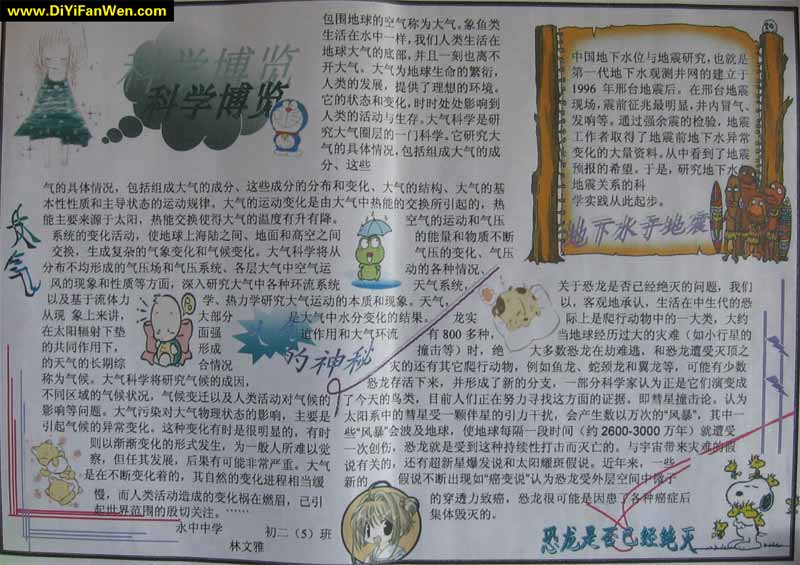 www.DiYiFanWen.com
科学博览
科学博览
包围地球的空气称为大气。象鱼类
生活在水中一样,我们人类生活在
地球大气的底部,并且一刻也离不
开大气、大气为地球生命的繁衍,
人类的发展,提供了理想的环境。
它的状态和变化,时时处处影响到
人类的活动与生存。大气科学是研
究大气圈层的一门科学。它研究大
气的具体情况,包括组成大气的成
分、这些
气的具体情况,包括组成大气的成分、这些成分的分布和变化、大气的结构、大气的基
本性性质和主导状态的运动规律。大气的运动变化是由大气中热能的交换所引起的,热
能主要来源于太阳,热能交换使得大气的温度有升有降。 空气的运动和气压
系统的变化活动,使地球上海陆之间、地面和高空之间 的能量和物质不断
交换,生成复杂的气象变化和气候变化。大气科学将从 气压的变化、气压
分布不均形成的气压场和气压系统、各层大气中空气运 动的各种情况、
风的现象和性质等方面,深入研究大气中各种环流系统 天气系统,
以及基于流体力 学、热力学研究大气运动的本质和现象。天气,
从现 象上来讲, 大部分 是大气中水分变化的结果。
在太阳辐射下垫 面强 迫作用和大气环流
的共同作用下, 形成
的天气的长期综 合情况
称为气候。大气科学将研究气候的成因,
不同区域的气候状况,气候变迁以及人类活动对气候的
影响等问题。大气污染对大气物理状态的影响,主要是
引起气候的异常变化。这种变化有时是很明显的,有时
则以渐渐变化的形式发生,为一般人所难以觉
察,但任其发展,后果有可能非常严重。大气
是在不断变化着的,其自然的变化进程相当缓
慢,而人类活动造成的变化祸在燃眉,已引
起世界范围的殷切关注。……
大气
的神秘
水中中学 初二(5)班
林文雅
中国地下水位与地震研究,也就是
第一代地下水观测井网的建立于
1996 年邢台地震后。在邢台地震
现场,震前征兆最明显,井内冒气、
发响等。通过强余震的检验,地震
工作者取得了地震前地下水异常
变化的大量资料。从中看到了地震
预报的希望。于是,研究地下水
地震关系的科
学实践从此起步。
地下水于地震
关于恐龙是否已经绝灭的问题,我们
以,客观地承认,生活在中生代的恐
龙实 际上是爬行动物中的一大类,大约
有 800 多种, 当地球经历过大的灾难(如小行星的
撞击等)时,绝 大多数恐龙在劫难逃,和恐龙遭受灭顶之
灾的还有其它爬行动物,例如鱼龙、蛇颈龙和翼龙等,可能有少数
恐龙存活下来,并形成了新的分支,一部分科学家认为正是它们演变成
了今天的鸟类,目前人们正在努力寻找这方面的证据。即彗星撞击论。认为
太阳系中的彗星受一颗伴星的引力干扰,会产生数以万次的“风暴”,其中一
些“风暴”会波及地球,使地球每隔一段时间(约 2600-3000 万年)就遭受
一次创伤,恐龙就是受到这种持续性打击而灭亡的。与宇宙带来灾难的假
说有关的,还有超新星爆发说和太阳耀斑假说。近年来,一些
新的 假说不断出现如“癌变说”认为恐龙受外层空间中微子
的穿透力致癌,恐龙很可能是因患了各种癌症后
集体毁灭的。
恐龙是否已经绝灭